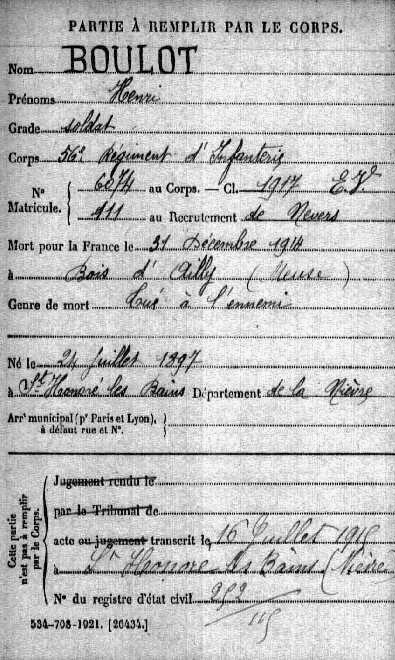 PARTIE À REMPLIR PAR LE CORPS.
Nom BOULOT
Prénoms Henri
Grade soldat
Corps 56e Régiment d'Infanterie
No Matricule. { 6874 au Corps. — Cl. 1917 E.V.
911 au Recrutement de Nevers
Mort pour la France le 31 Décembre 1914
à Bois d'Ailly (Meuse)
Genre de mort Tué à l'ennemi
Né le 24 Juillet 1897
à St Honoré les Bains Département de la Nièvre
Arrt municipal (pr Paris et Lyon), à défaut rue et No. }
Cette partie n'est pas à remplir par le Corps. {
Jugement rendu le
par le Tribunal de
acte ou jugement transcrit le 16 Juillet 1915
à St Honoré les Bains (Nièvre
No du registre d'état civil
534-708-1921. [26434.]